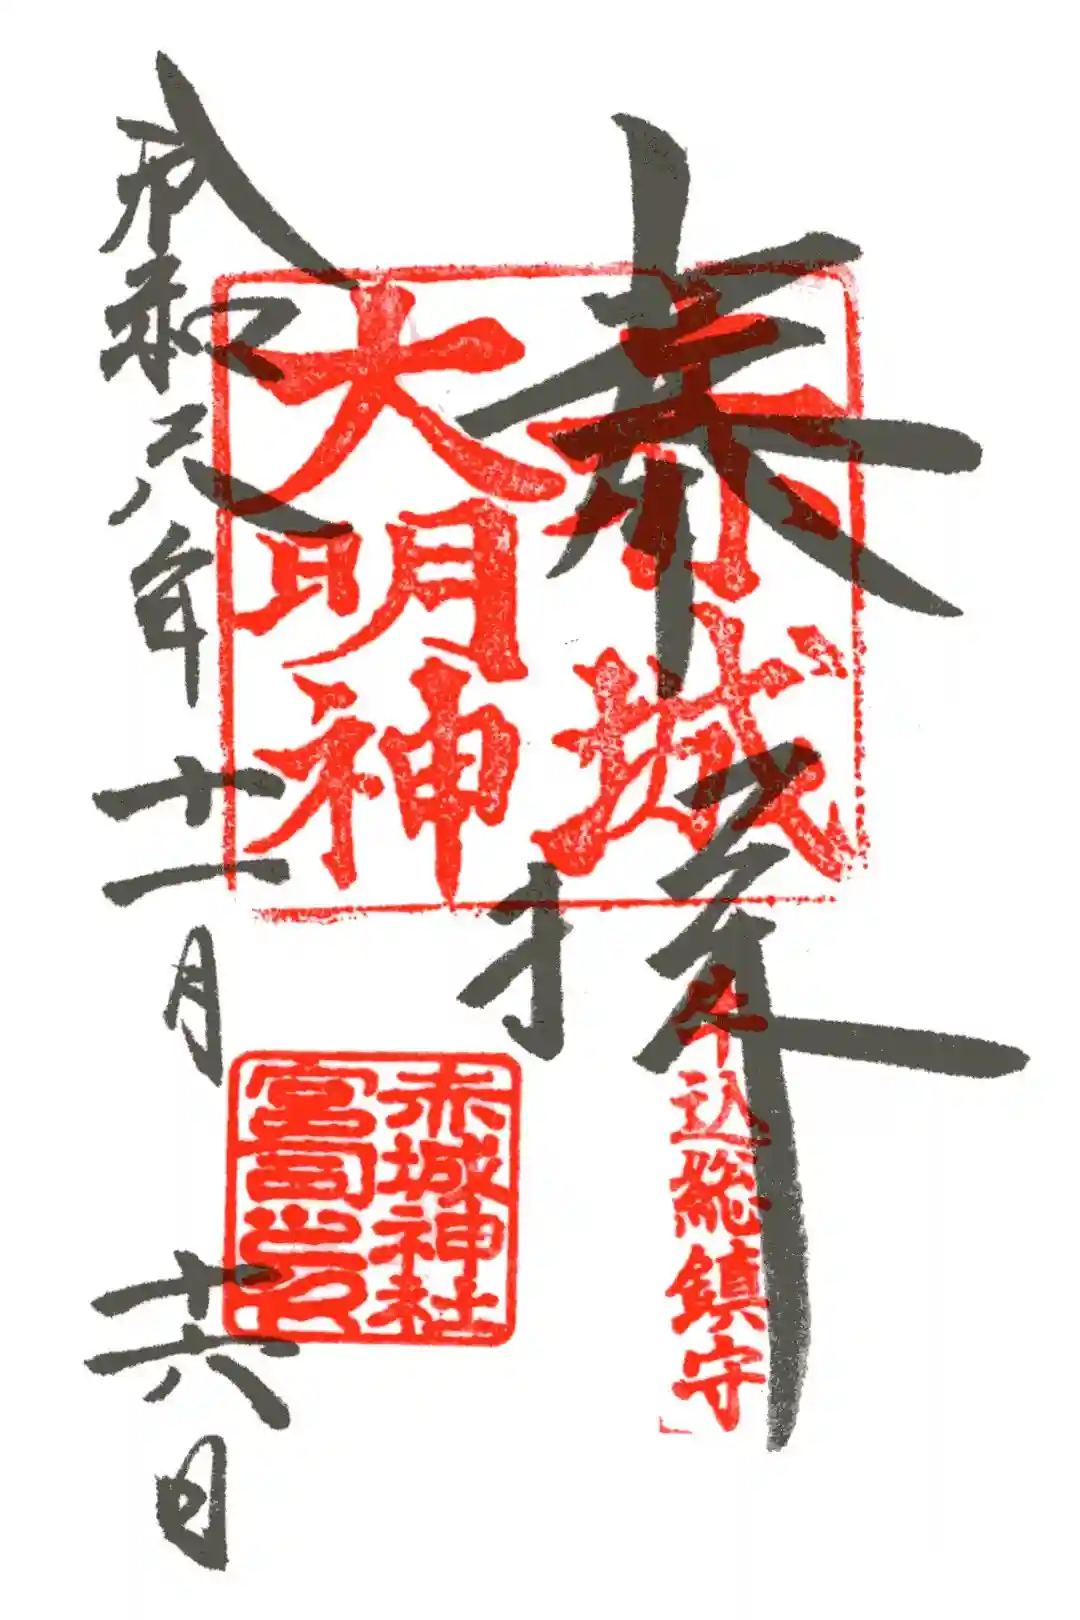 奉拝
赤城
大明神
牛込総鎮守
赤城神社
宮司之印
令和元年十一月十六日